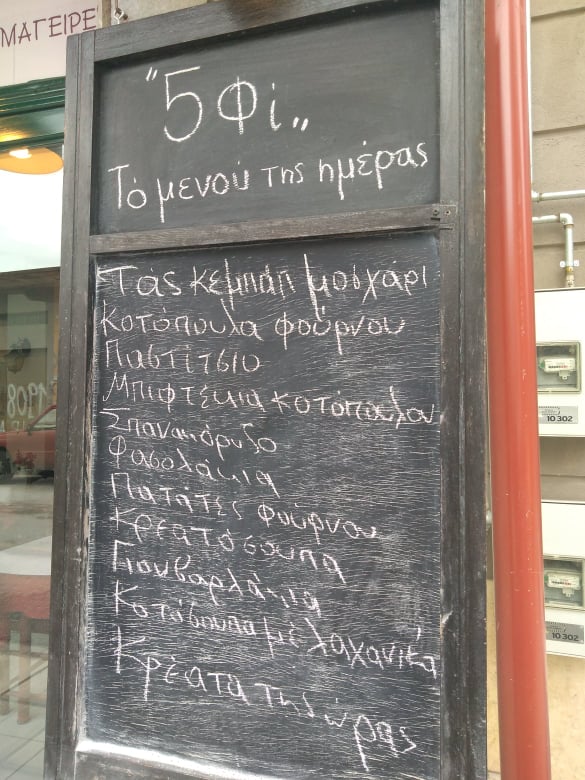 ΜΑΓΕΙΡΕ
"5Φi„
Τό μενού της ημέρας
Τάς κεμπάπ μοσχάρι
Κοτόπουλα φούρνου
Παστίτσιο
Μπιφτέκια κοτόπουλου
Σπανακόρυζο
Φασολάκια
Πατάτες φούρνου
Κρεατόσουπα
Γιουβαρλάκια
Κοτόσουπα μέ λαχανικά
Κρέατα της ώρας
1908
10 302
10 302